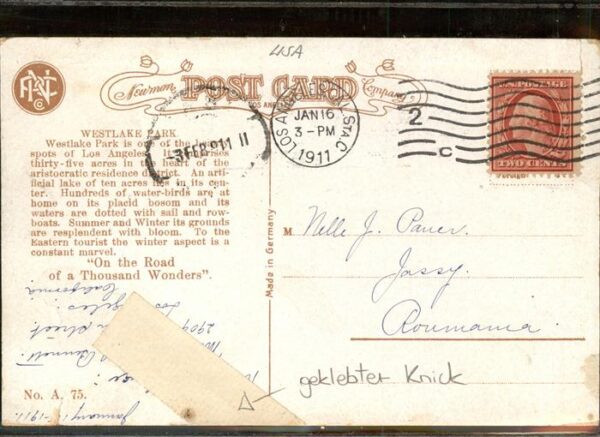 USA
Newman POST CARD Company
LOS ANGELES
JAN 16
3-PM
1911
STA. C
2
C
3 FEB 911 11
U.S. POSTAGE
TWO CENTS
WESTLAKE PARK
Westlake Park is one of the
spots of Los Angeles. It
thirty-five acres in the heart of the
aristocratic residence district. An arti-
ficial lake of ten acres lies in its cen-
ter. Hundreds of water-birds are at
home on its placid bosom and its
waters are dotted with sail and row-
boats. Summer and Winter its grounds
are resplendent with bloom. To the
Eastern tourist the winter aspect is a
constant marvel.
"On the Road
of a Thousand Wonders".
Made in Germany
M Nelle J. Pauer.
Jassy.
Roumania.
California
Los Angeles.
2904 street
Bennett
January 1911.
geklebter Knick
No. A. 75.